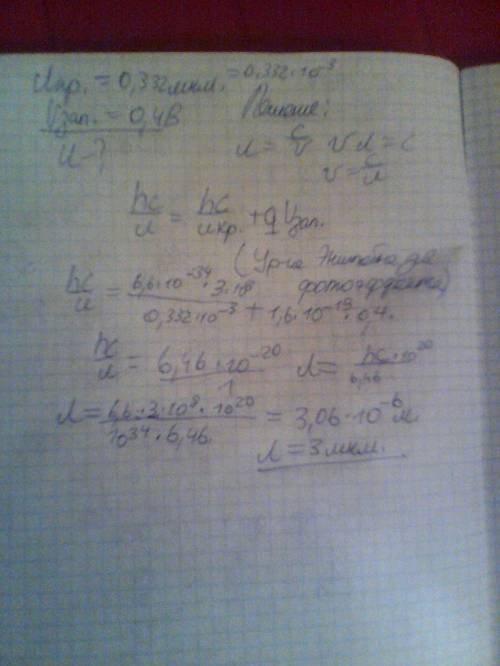 λкр. = 0,332 мкм. = 0,332·10⁻³
Vзап. = 0,4В Решение:
λ-? λ = c/ν ν λ = c
ν = c/λ
hc/λ = hc/λкр. + q Vзап.
(Ур-е Эйнштейна для
фотоэффекта)
hc/λ = 6,6·10⁻³⁴·3·10⁸/0,332·10⁻³ + 1,6·10⁻¹⁹·0,4.
hc/λ = 6,46·10⁻²⁰/1 λ = hc·10²⁰/6,46
λ = 6,6·3·10⁸·10²⁰/10³⁴·6,46. = 3,06·10⁻⁶ м.
λ = 3 мкм.